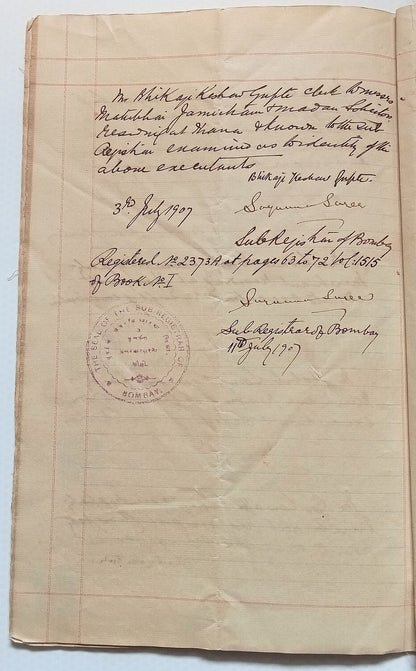 Mr Bhikaji Keshav Gupte clerk to messrs
Matubhai Jamietram & madan Solicitors
residing at Thana & known to the Sub
Registrar examined as to identity of the
above executants
Bhikaji Keshav Gupte.
3rd July 1907
Sub Registrar of Bombay
Registered No. 2373A at pages 63 to 72 Vol 1515
of Book No. I
Sub Registrar of Bombay
11th July 1907
THE SEAL OF THE SUB REGISTRAR OF
BOMBAY.